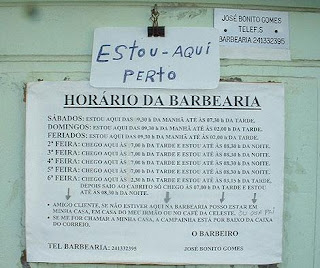 JOSÉ BONITO GOMES
TELEF.S
BARBEARIA 241332395
ESTOU-AQUI
PERTO
HORÁRIO DA BARBEARIA
SÁBADOS: ESTOU AQUI DAS 9,30 h DA MANHÃ ATÉ ÀS 07,30 h DA TARDE.
DOMINGOS: ESTOU AQUI DAS 09,30 h DA MANHÃ ATÉ ÀS 02,00 h DA TARDE.
FERIADOS: ESTOU AQUI DAS 09,30 h DA MANHÃ ATÉ ÀS 02,00 h DA TARDE.
2ª FEIRA: CHEGO AQUI ÀS 7,00 h DA TARDE E ESTOU ATÉ ÀS 08,30 h DA NOITE.
3ª FEIRA: CHEGO AQUI ÀS 7,00 h DA TARDE E ESTOU ATÉ ÀS 08,30 h DA NOITE.
4ª FEIRA: CHEGO AQUI ÀS 7,00 h DA TARDE E ESTOU ATÉ ÀS 08,30 h DA NOITE.
5ª FEIRA: CHEGO AQUI ÀS 7,00 h DA TARDE E ESTOU ATÉ ÀS 08,30 h DA NOITE.
6ª FEIRA: CHEGO AQUI ÀS 2,30 h DA TARDE E ESTOU ATÉ ÀS 03,15 h DA TARDE,
DEPOIS SAIO AO CADRITO SÓ CHEGO ÀS 07,00 h DA TARDE E ESTOU
ATÉ ÀS 08,30 h DA NOITE.
• AMIGO CLIENTE, SE NÃO ESTIVER AQUI NA BARBEARIA POSSO ESTAR EM
MINHA CASA, EM CASA DO MEU IRMÃO OU NO CAFÉ DA CELESTE.
• SE ME FOR CHAMAR A MINHA CASA, A CAMPAINHA ESTÁ POR BAIXO DA CAIXA
DO CORREIO.
O BARBEIRO
TEL BARBEARIA: 241332395
JOSÉ BONITO GOMES